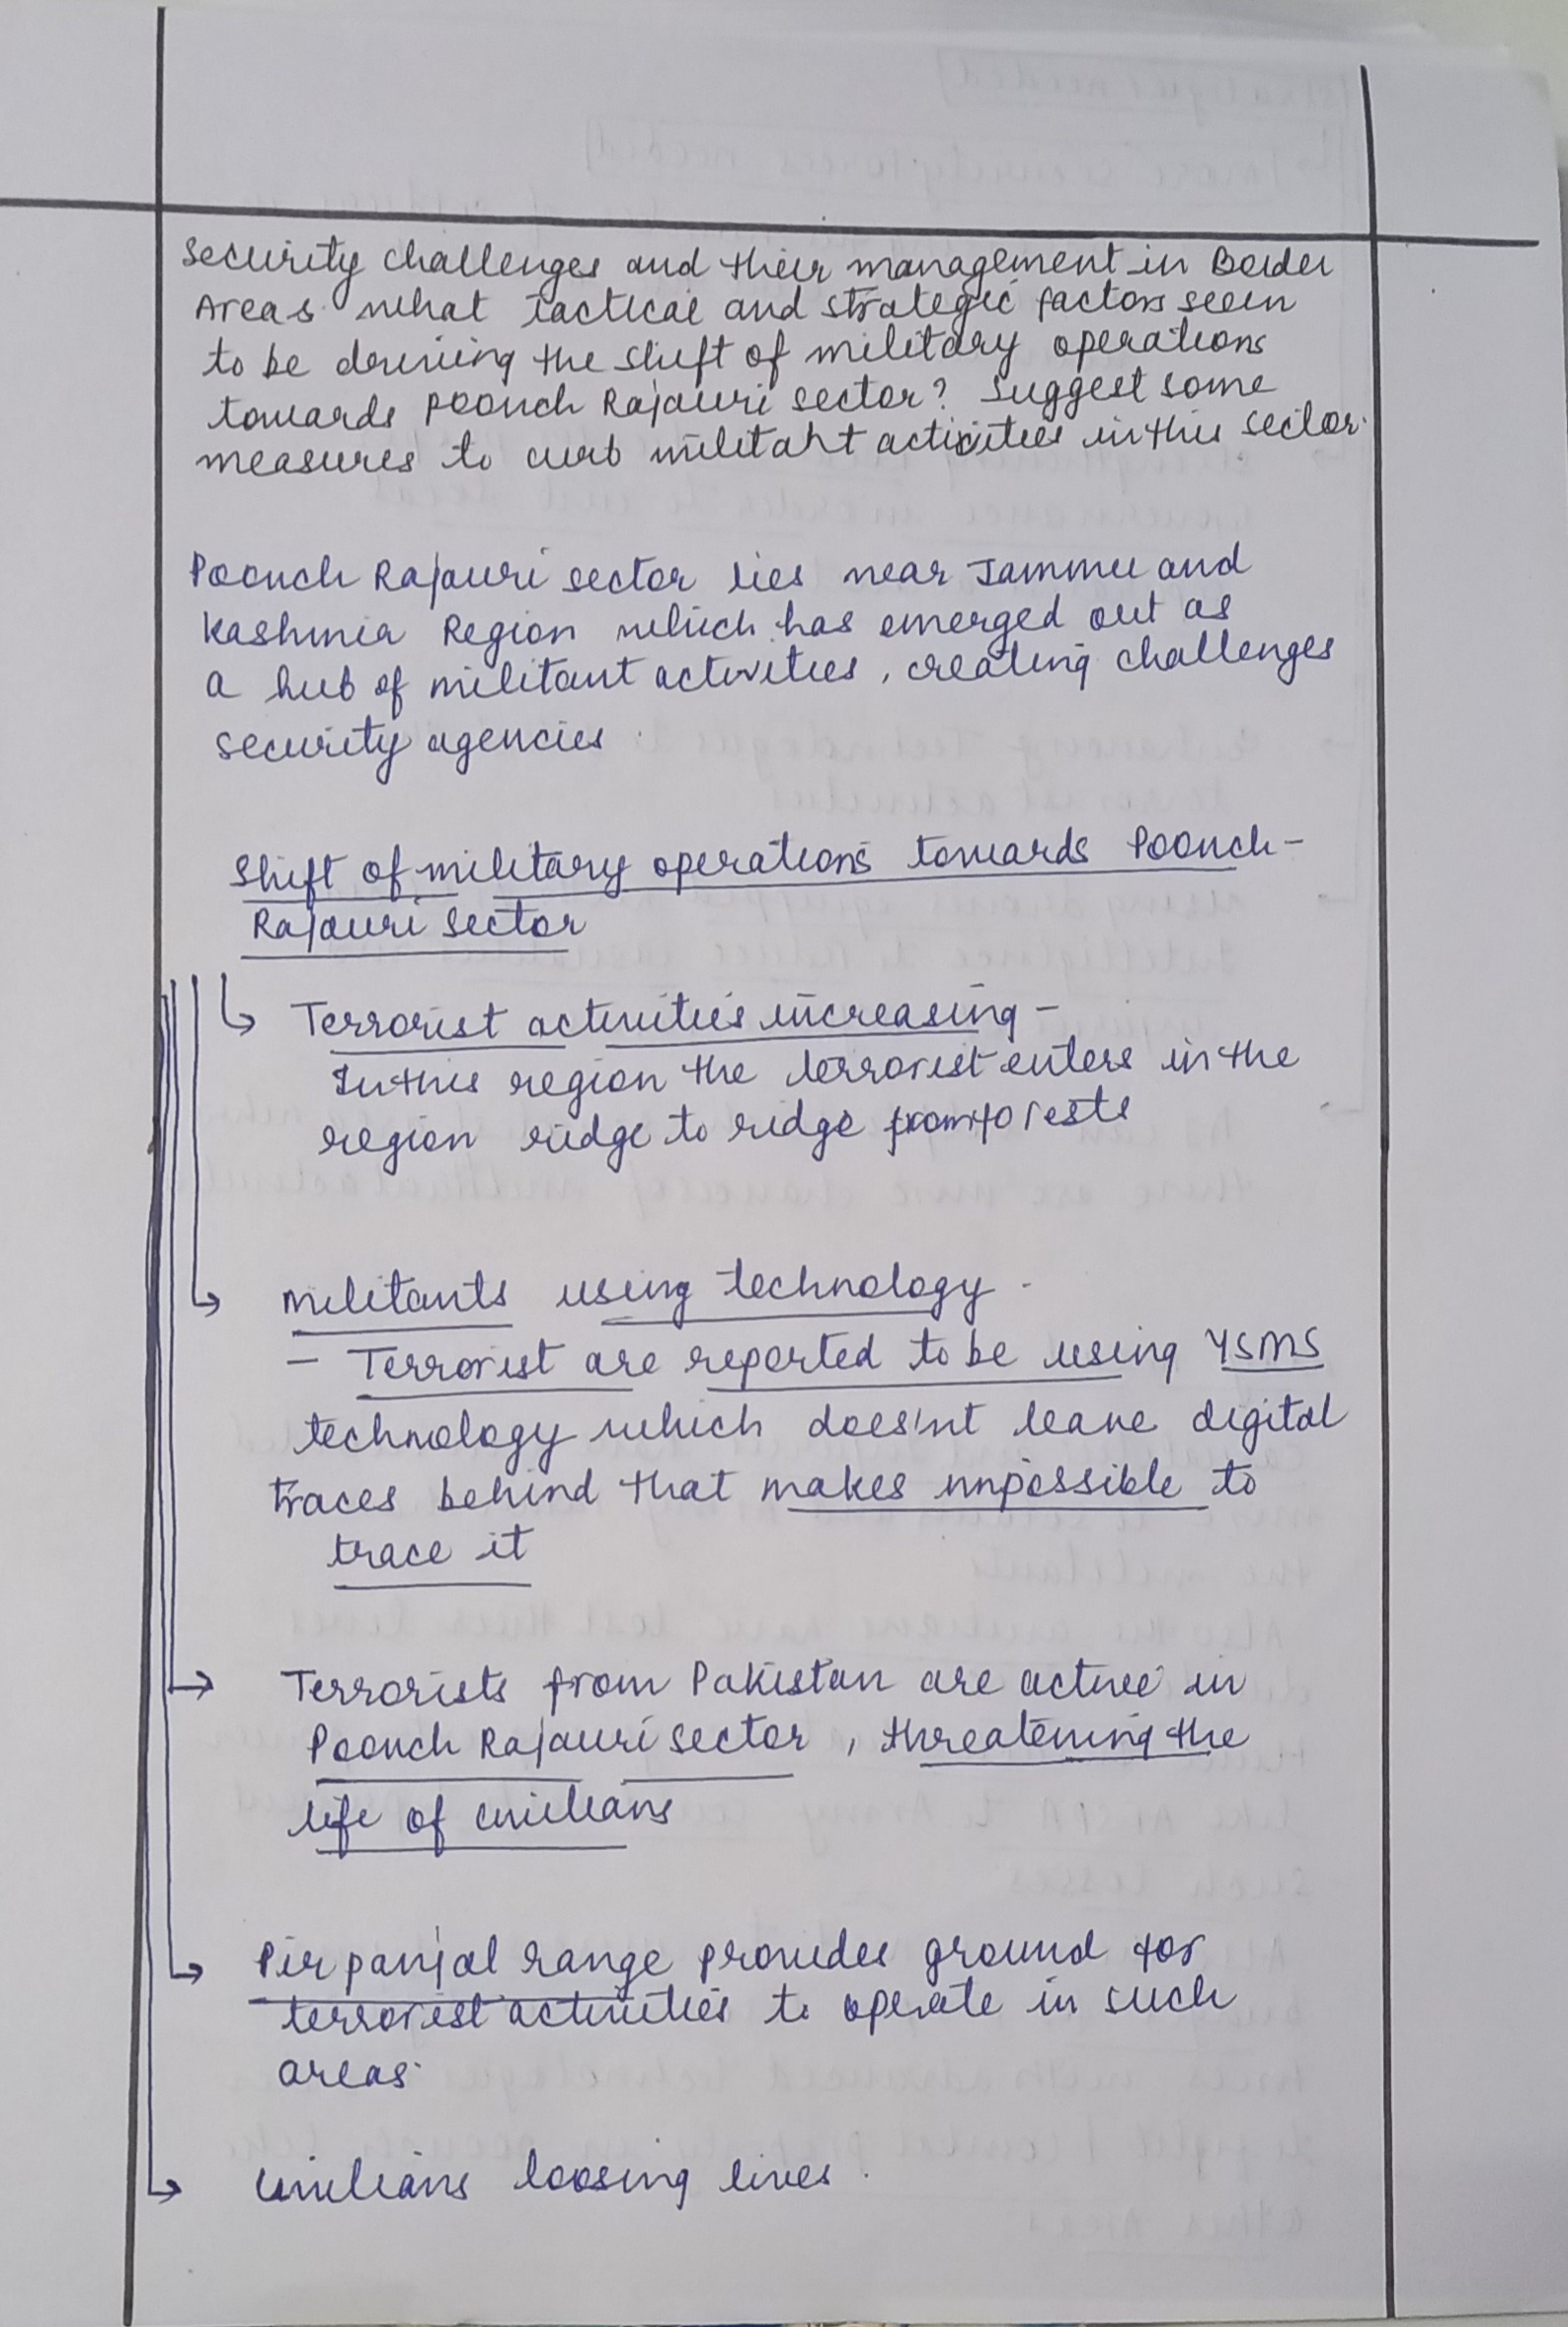 Security challenges and their management in Border
Areas what tactical and strategic factors seen
to be driving the shift of military operations
towards Poonch Rajauri sector? Suggest some
measures to curb militant activities in this sector.
Poonch Rajauri sector lies near Jammu and
Kashmir Region which has emerged out as
a hub of militant activities, creating challenges
security agencies.
Shift of military operations towards Poonch-
Rajauri sector
Terrorist activities increasing -
In this region the terrorist enters in the
region ridge to ridge from forests
Militants using technology -
- Terrorist are reported to be using YSMS
technology which does'nt leave digital
traces behind that makes impossible to
trace it
Terrorists from Pakistan are active in
Poonch Rajauri sector, threatening the
life of civilians
Pir panjal range provides ground for
terrorist activities to operate in such
areas.
Civilians loosing lives.